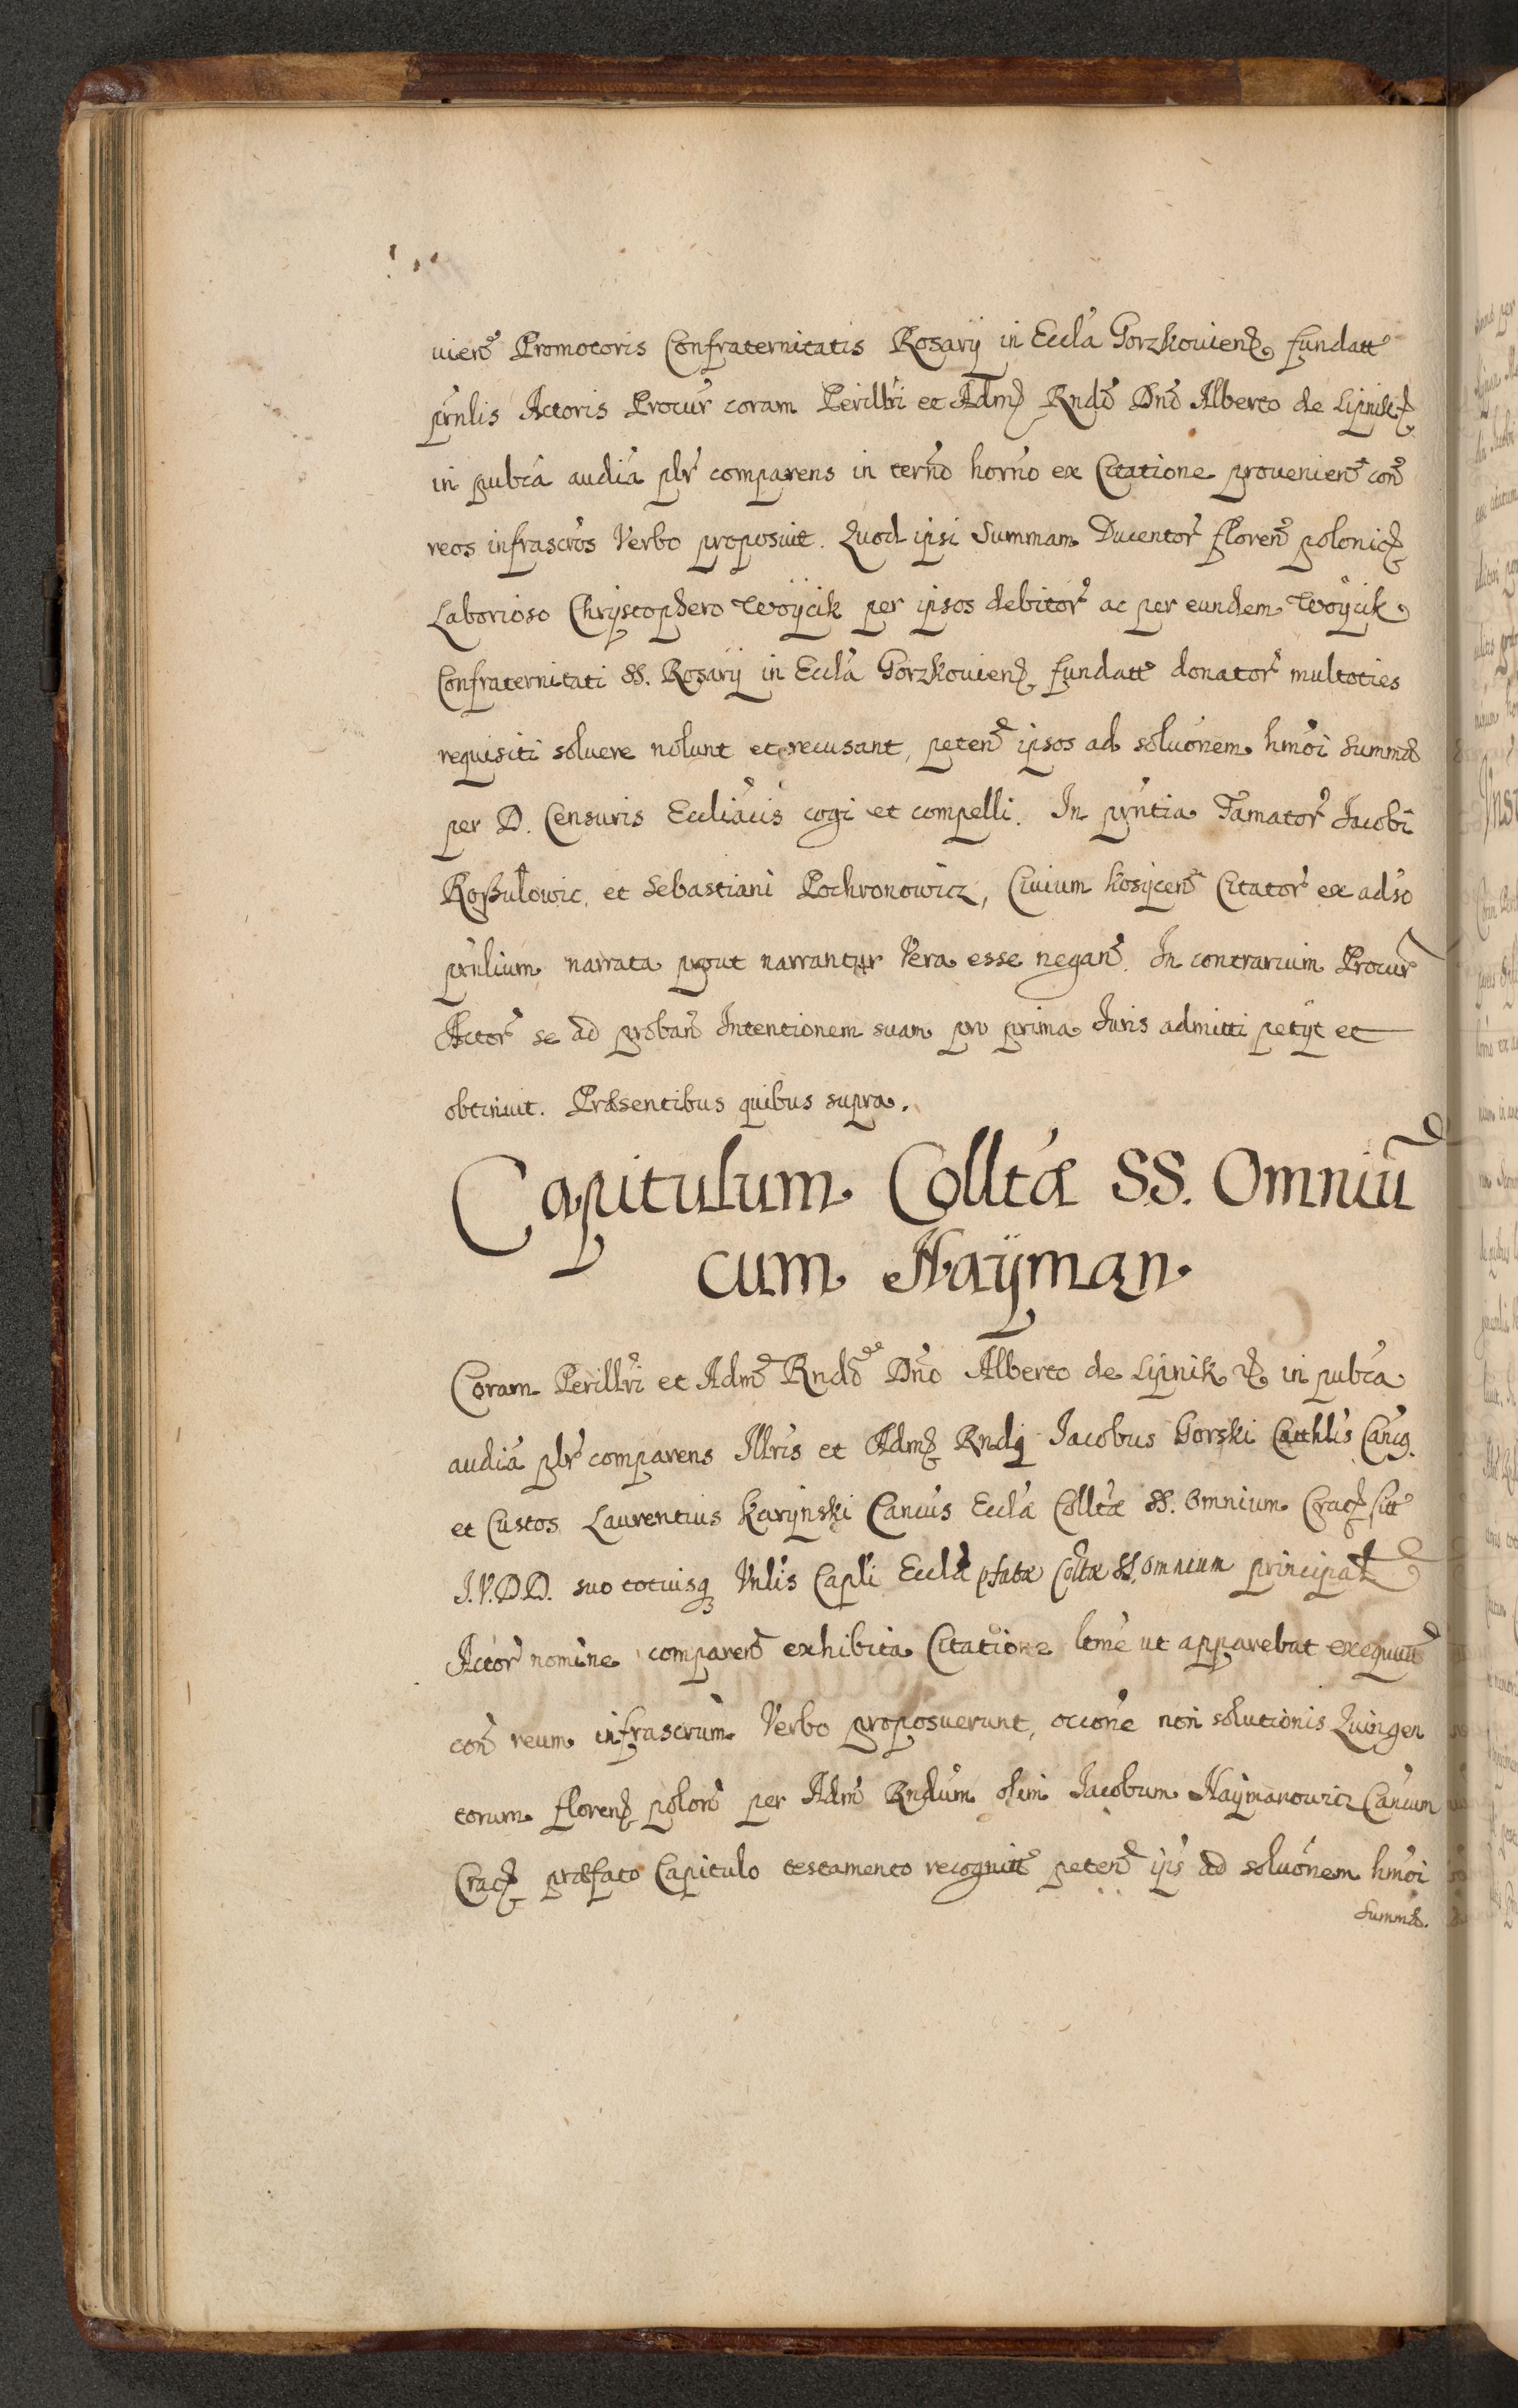 uien̄ Promotoris Confraternitatis Rosarij in Eccla Gorzkouien̄ fundatt
prn̄lis Actoris Procur̄ coram Perillri et Adm̄ Rndō Dnō Alberto de Lipnik
in pubca audia plr̄ comparens in tern̄o horn̄o ex Citatione prouenien̄ con̄
reos infrascros Verbo proposuit. Quod ipsi Summam Ducentor̄ floren̄ polonic̄
Laborioso Chrystophero Woÿcik per ipsos debitor̄ ac per eundem Woÿcik
Confraternitati SS. Rosarÿ in Eccla Gorzkouien̄ fundatt donator̄ multoties
requisiti soluere nolunt et recusant, peten̄ ipsos ad soluōnem hmōi Summæ
per D. Censuris Eccliacis cogi et compelli. In prn̄tia Famator̄ Jacobi
Roßulowic, et Sebastiani Pochronowicz, Ciuium Kosÿcen̄ Citator̄ ex adso
prn̄lium narrata prout narrantur Vera esse negan̄. In contrarium Procur̄
Actor̄ se ad proban̄ Intentionem suam pro prima Juris admitti petÿt et
obtinuit. Præsentibus quibus supra.
Capitulum Colltæ SS. Omniū
cum Haÿman
Coram Perillri et Adm̄ Rndō Dnō Alberto de Lipnik in pubca
audia plr̄ comparens Illris et Adm̄ Rndq Jacobus Gorski Catthlis Cancq
et Custos Laurentius Karÿnski Cancus Eccla Colltæ SS. Omnium Crac̄ sitt
J.V.D.D. suo totiusq Vnlis Capli Eccla pfatæ Colltæ SS. omnium principal
Actor̄ nomine comparen̄ exhibita Citatione ltmē ut apparebat exequut̄
con̄ reum infrascrum Verbo proposuerunt, occiōne non solutionis Quingen
torum floren̄ polon̄ per Adm̄ Rndum olim Jacobum Haÿmanowicz Cancum
Crac̄ præfato Capitulo testamento recognitt peten̄ ips̄ ad soluōnem hmōi
Summæ.